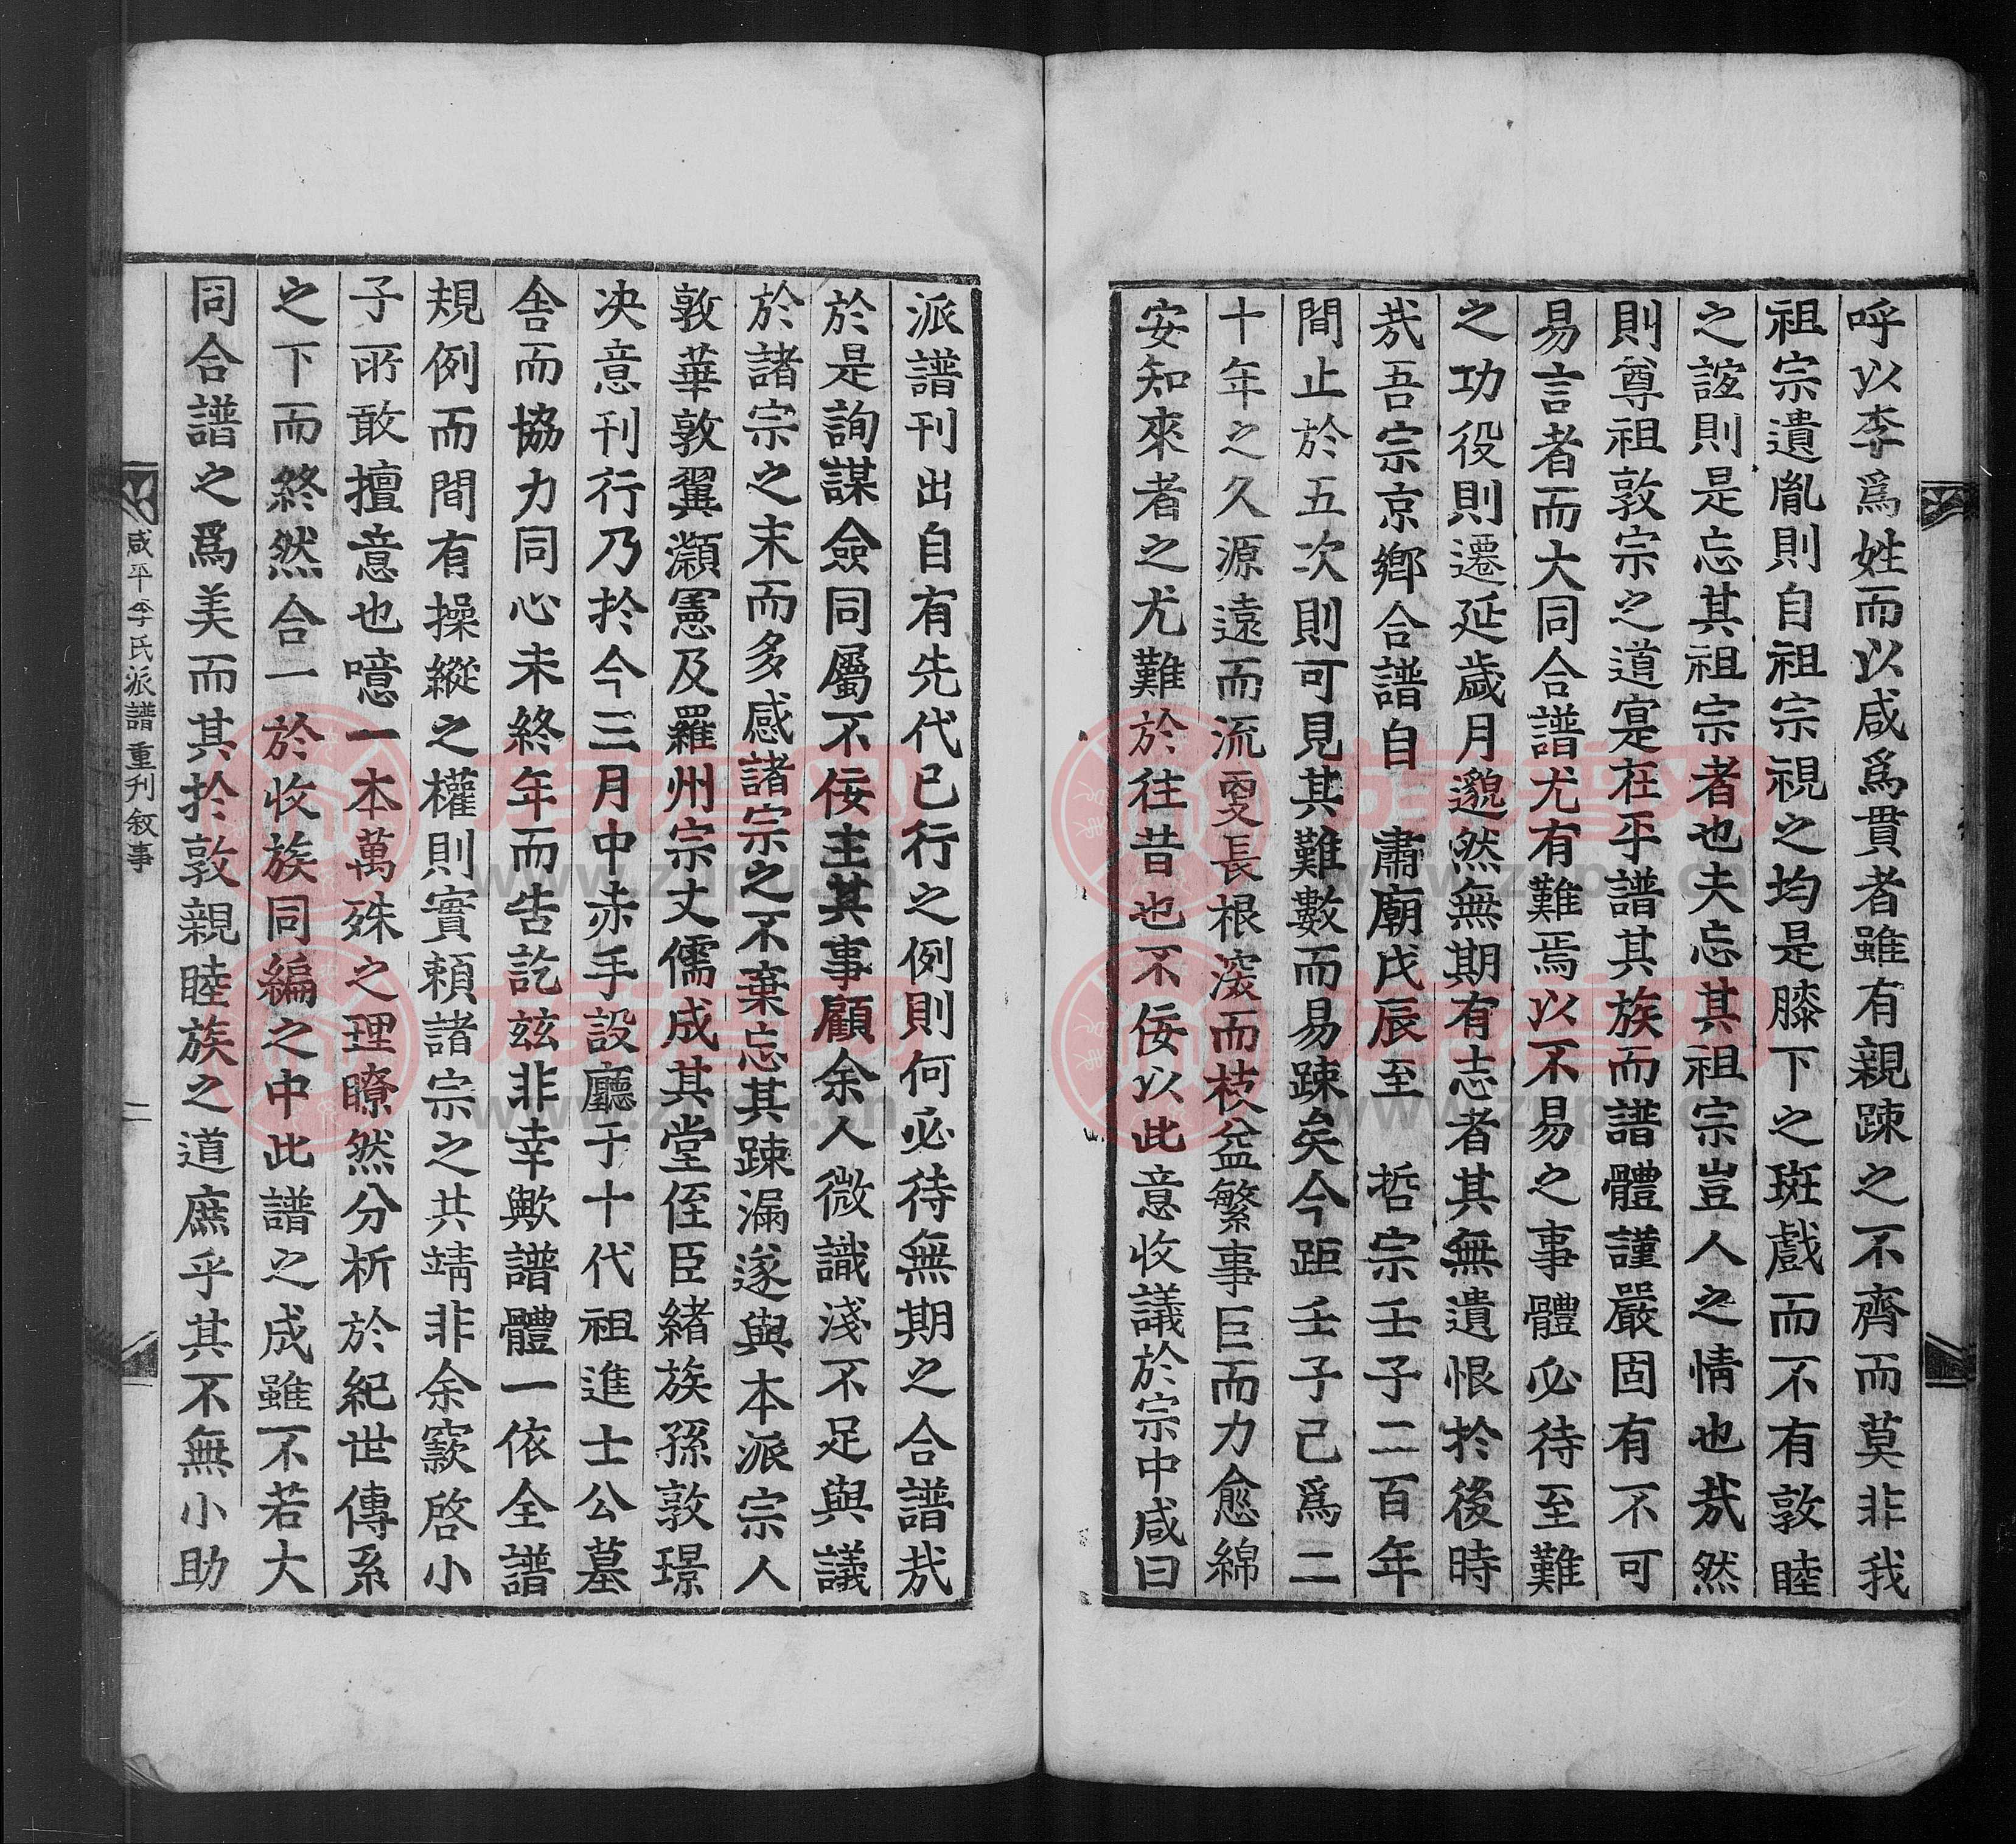 呼以李爲姓而以咸爲貫者雖有親踈之不齊而莫非我
祖宗遺胤則自祖宗視之均是膝下之斑戲而不有敦睦
之誼則是忘其祖宗者也夫忘其祖宗豈人之情也㢤然
則尊祖敦宗之道寔在乎譜其族而譜體謹嚴固有不可
易言者而大同合譜尤有難焉以不易之事體必待至難
之功役則遷延歲月邈然無期有志者其無遺恨於後時
㢤吾宗京鄕合譜自 肅廟戊辰至 哲宗壬子二百年
間止於五次則可見其難數而易踈矣今距壬子己爲二
十年之久源遠而流雯長根深而枝益繁事巨而力愈綿
安知來者之尤難於往昔也不佞以此意收議於宗中咸曰
派譜刊出自有先代已行之例則何必待無期之合譜㢤
於是詢謀僉同屬不佞主其事顧余人微識淺不足與議
於諸宗之末而多感諸宗之不棄忘其踈漏遂與本派宗人
敦華敦翼灝憲及羅州宗丈儒成其堂侄臣緖族孫敦璟
决意刊行乃扵今三月中赤手設廳于十代祖進士公墓
舍而協力同心未終年而告訖玆非幸歟譜體一依全譜
規例而間有操縱之權則實賴諸宗之共靖非余窾啓小
子所敢擅意也噫一本萬殊之理瞭然分析於紀世傳系
之下而終然合一於收族同編之中此譜之成雖不若大
同合譜之爲美而其扵敦親睦族之道庶乎其不無小助
咸平李氏派譜重刋敘事
二
族谱网
www.zupu.cn
族谱网
www.zupu.cn
族谱网
www.zupu.cn
族谱网
www.zupu.cn